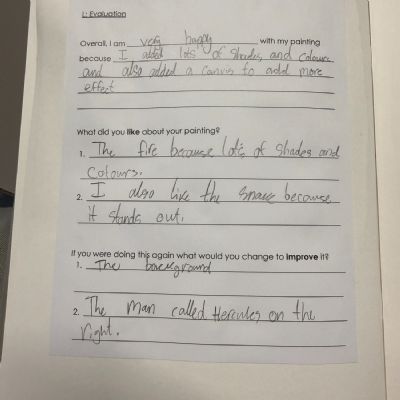 L: Evaluation
Overall, I am very happy with my painting
because I added lots of Shades and colours
and also added a canvis to add more
effect
What did you like about your painting?
1. The fire because lots of Shades and
Colours.
2. I also like the snake because
it stands out.
If you were doing this again what would you change to improve it?
1. The background
2. The man called Hercules on the
right.